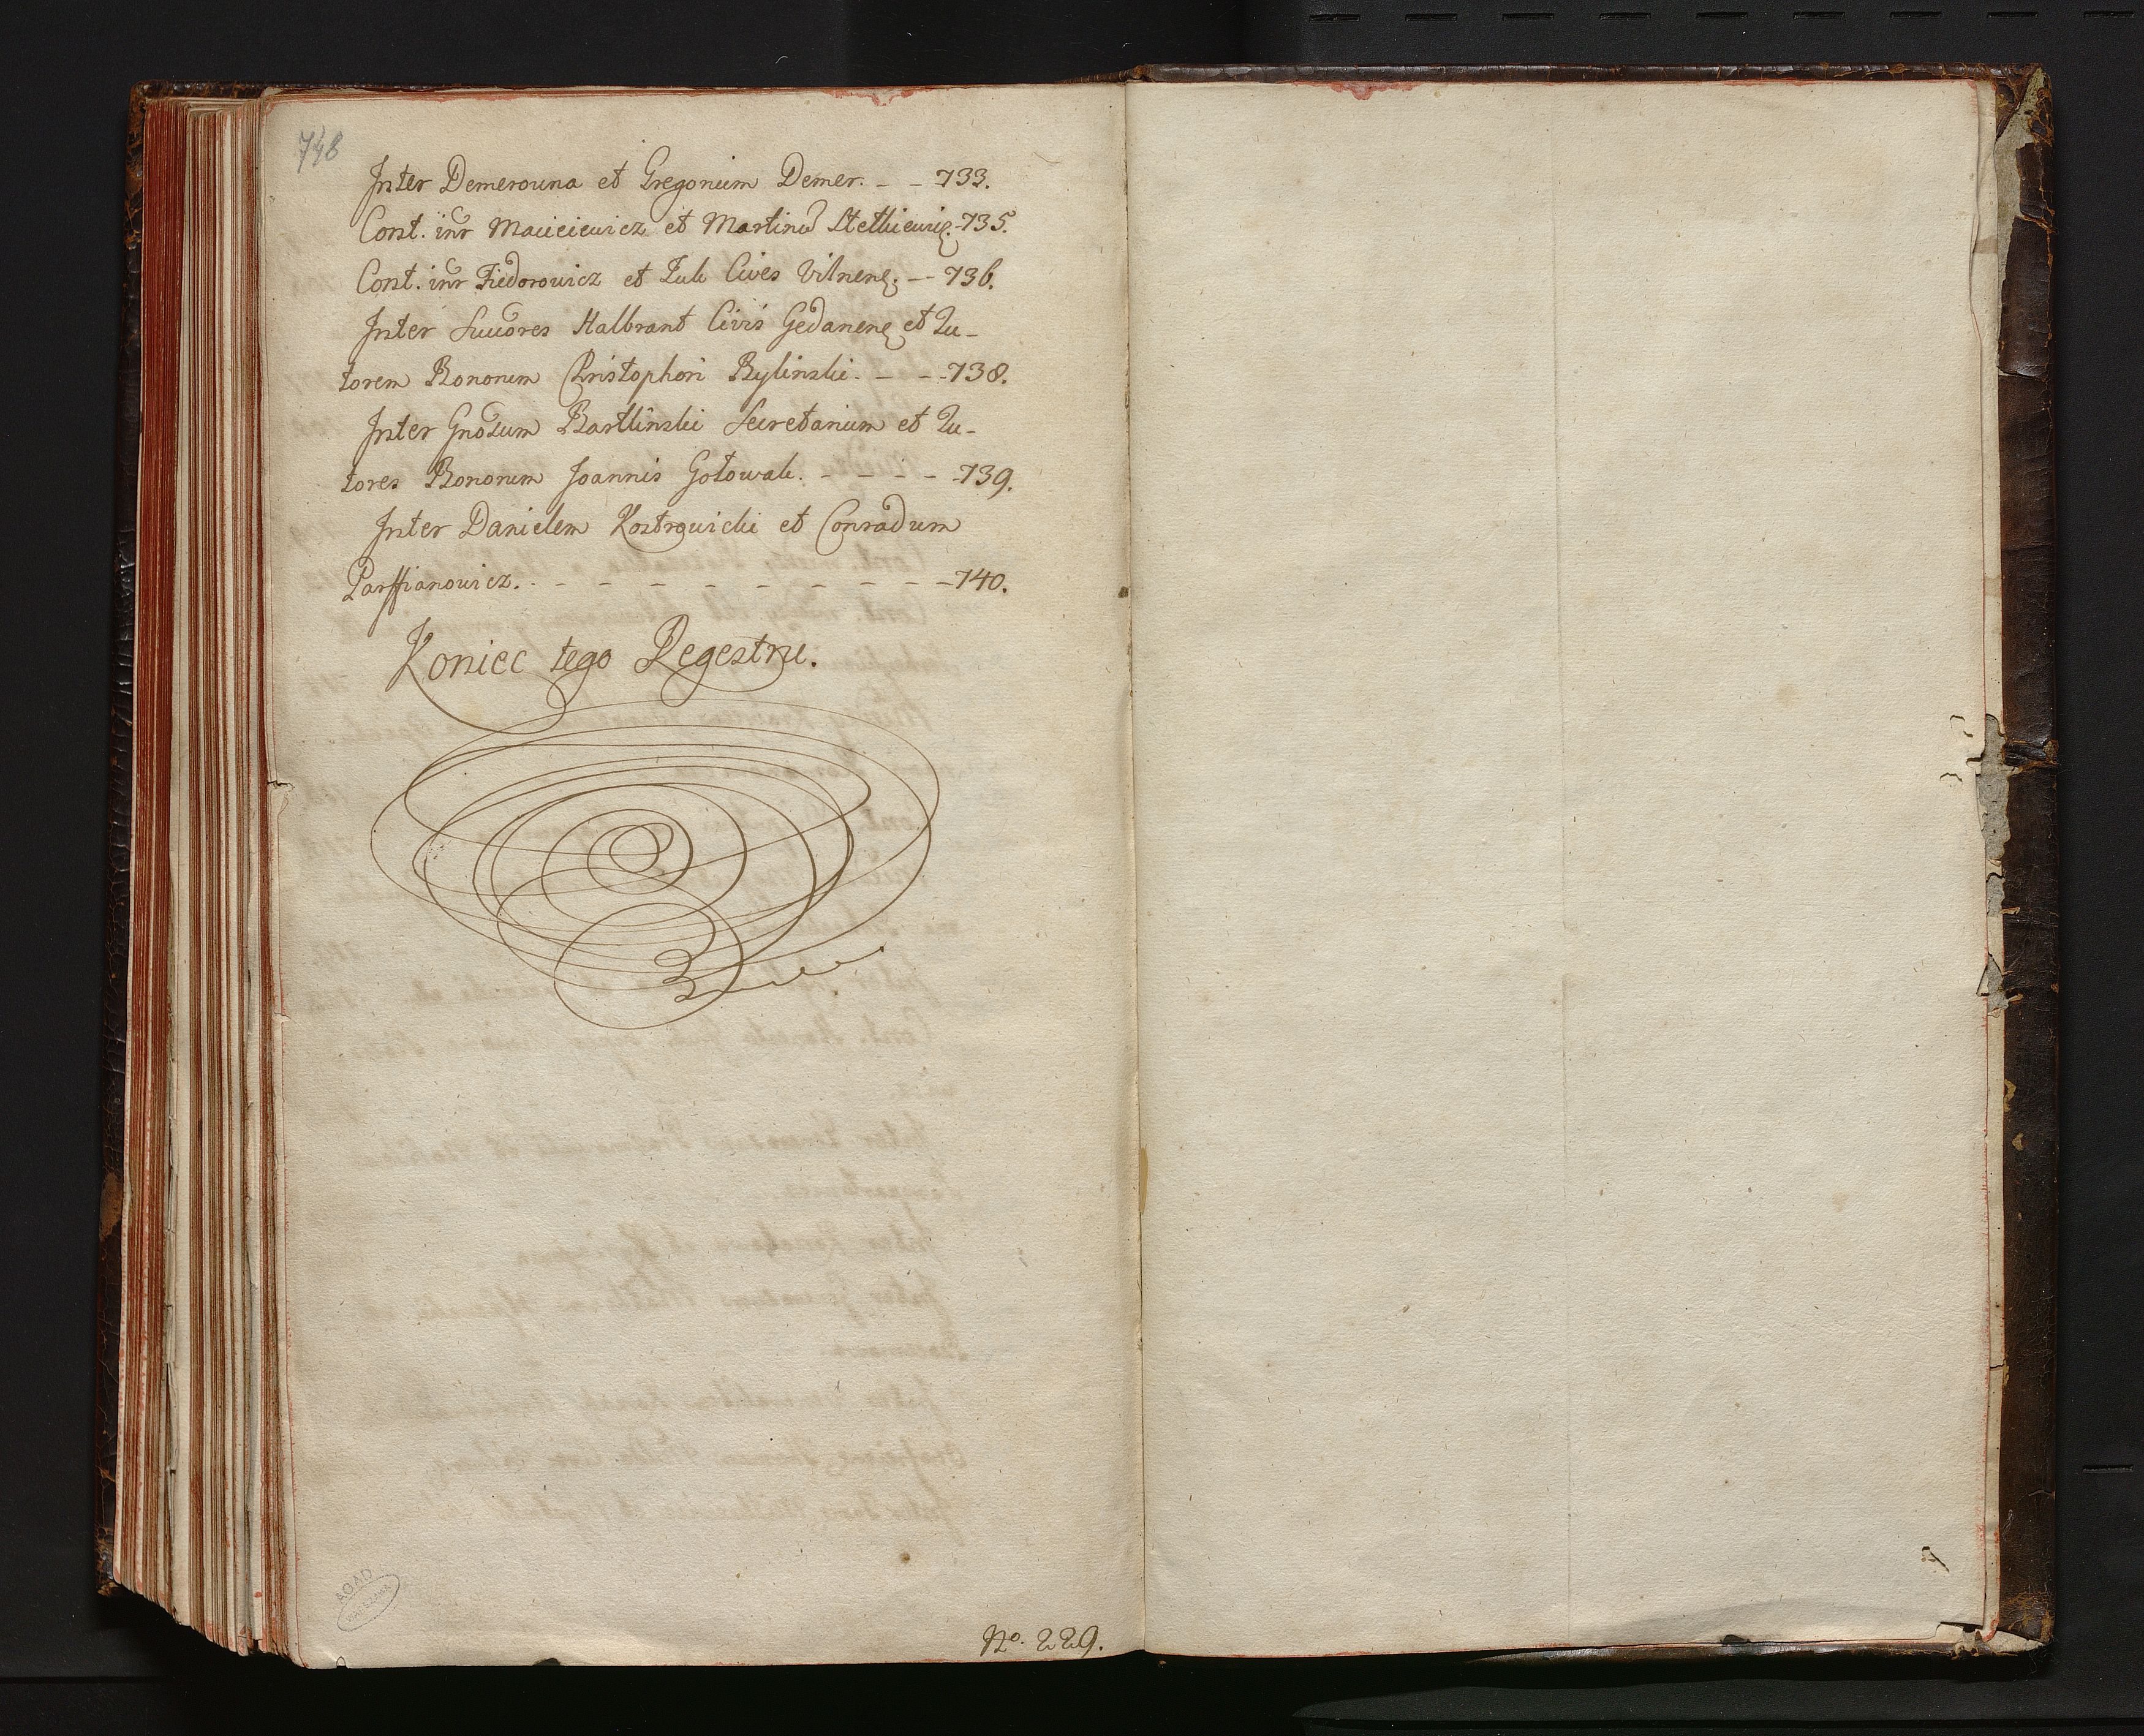 748
Inter Demerowna et Gregorium Demer. - - 733.
Cont. inr Macieiewicz et Martinū Stetkiewicz. - 735.
Cont. inr Fiedorowicz et Luk Cives Vilnens. - - 736.
Inter Succores Halbrant Civis Gedanens et Tu-
torem Bonorum Christophori Bylinski. - - - 738.
Inter Gnosum Bartlinski Secretarium et Tu-
tores Bonorum Joannis Gotowak. - - - - 739.
Inter Danielem Kostrowicki et Conradum
Parffianowicz. - - - - - - - - - - 740.
Koniec tego Regestru.
AGAD
WARSZAWA
No. 229.